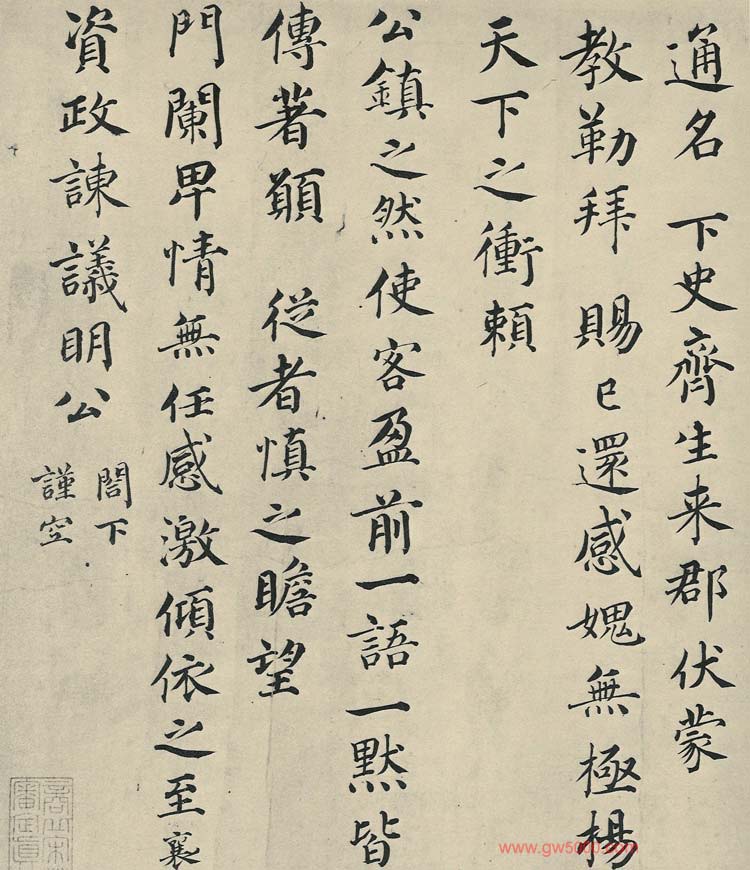 通名 下史齊生来郡伏蒙
教勒拜 賜已還感媿無極楊
天下之衝頼
公鎮之然使客盈前一語一默皆
傳著願 従者慎之瞻望
門闌卑情無任感激傾依之至襄
資政諫議明公
閤下
謹空
www.gw5000.com